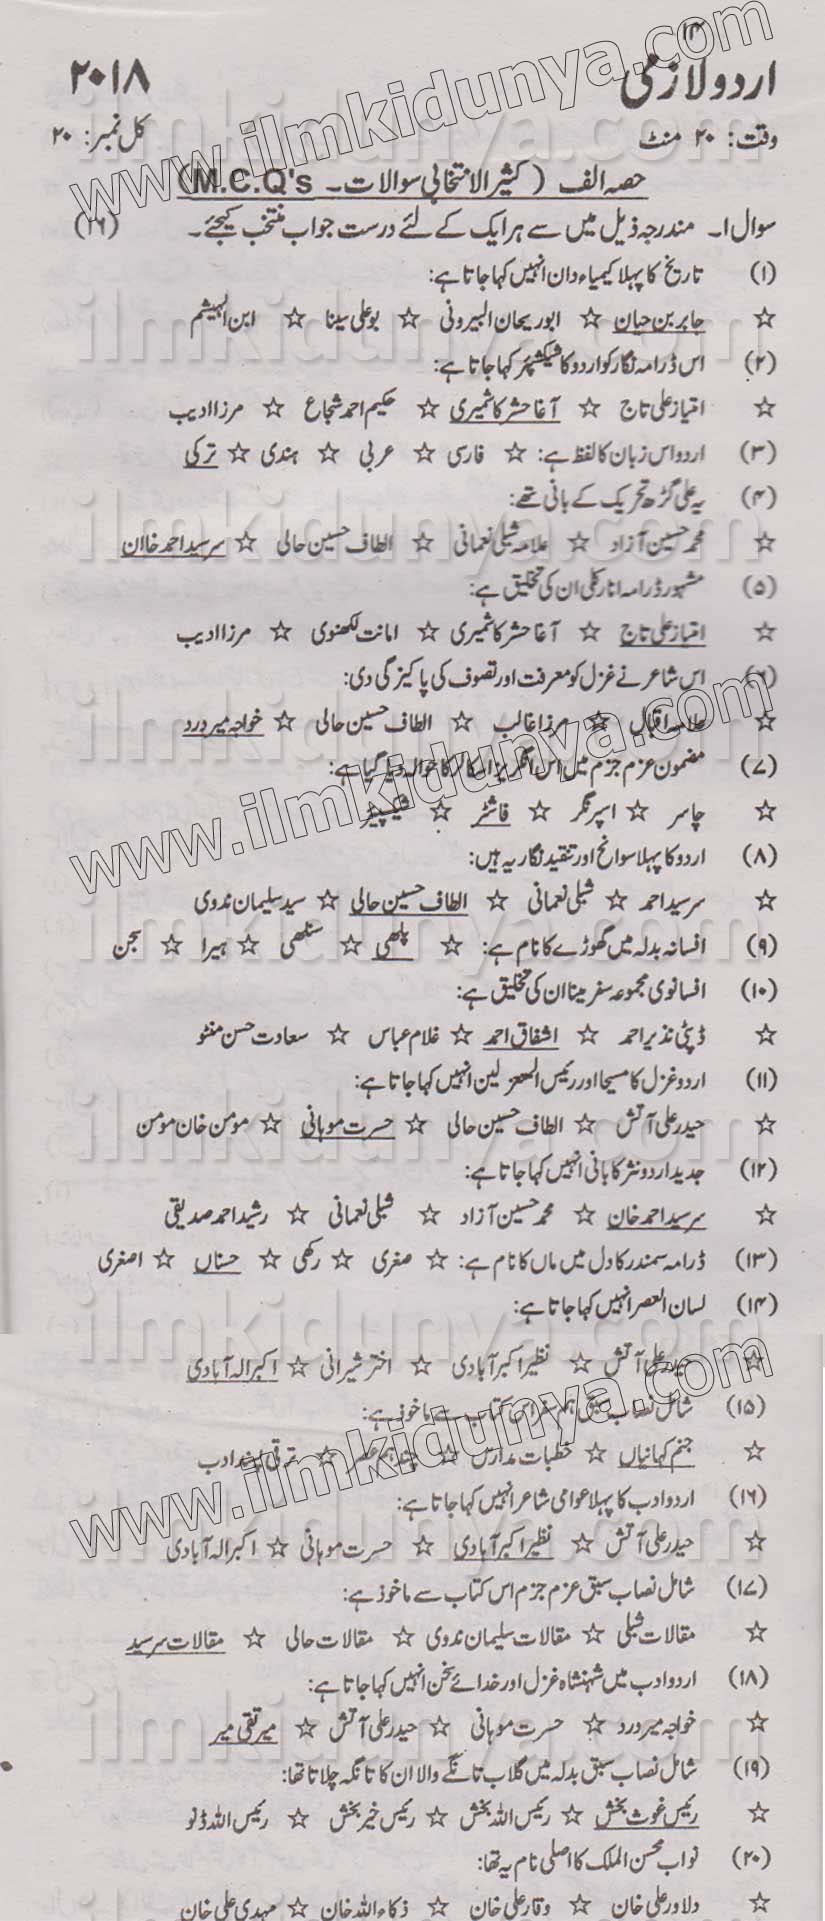 ۱۴
اردو لازمی ۲۰۱۸
وقت: ۲۰ منٹ کل نمبر: ۲۰
حصہ الف (کثیر الانتخابی سوالات۔ M.C.Q's)
سوال ۱۔ مندرجہ ذیل میں سے ہر ایک کے لئے درست جواب منتخب کیجئے۔ (۲۶)
(۱) تاریخ کا پہلا کیمیاء دان انہیں کہا جاتا ہے:
☆ جابر بن حیان ☆ ابوریحان البیرونی ☆ بوعلی سینا ☆ ابن الہیشم
(۲) اس ڈرامہ نگار کو اردو کا شیکسپئر کہا جاتا ہے:
☆ امتیاز علی تاج ☆ آغا حشر کاشمیری ☆ حکیم احمد شجاع ☆ مرزا ادیب
(۳) اردو اس زبان کا لفظ ہے: ☆ فارسی ☆ عربی ☆ ہندی ☆ ترکی
(۴) یہ علی گڑھ تحریک کے بانی تھے:
☆ محمد حسین آزاد ☆ علامہ شبلی نعمانی ☆ الطاف حسین حالی ☆ سرسید احمد خاان
(۵) مشہور ڈرامہ انارکلی ان کی تخلیق ہے:
☆ امتیاز علی تاج ☆ آغا حشر کاشمیری ☆ امانت لکھنوی ☆ مرزا ادیب
(۶) اس شاعر نے غزل کو معرفت اور تصوف کی پاکیزگی دی:
☆ علامہ اقبال ☆ مرزا غالب ☆ الطاف حسین حالی ☆ خواجہ میر درد
(۷) مضمون عزم جزم میں اس انگریز اسکالر کا حوالہ دیا گیا ہے:
☆ چاسر ☆ اسپرنگر ☆ فاسٹر ☆ شیکسپیئر
(۸) اردو کا پہلا سوانح اور تنقید نگار یہ ہیں:
☆ سرسید احمد ☆ شبلی نعمانی ☆ الطاف حسین حالی ☆ سید سلیمان ندوی
(۹) افسانہ بدلہ میں گھوڑے کا نام ہے: ☆ پلھی ☆ سنلھی ☆ ہیرا ☆ سجن
(۱۰) افسانوی مجموعہ سفر مینا ان کی تخلیق ہے:
☆ ڈپٹی نذیر احمد ☆ اشفاق احمد ☆ غلام عباس ☆ سعادت حسن منٹو
(۱۱) اردو غزل کا مسیحا اور رئیس المتغزلین انہیں کہا جاتا ہے:
☆ حیدر علی آتش ☆ الطاف حسین حالی ☆ حسرت موہانی ☆ مومن خان مومن
(۱۲) جدید اردو نثر کا بانی انہیں کہا جاتا ہے:
☆ سرسید احمد خان ☆ محمد حسین آزاد ☆ شبلی نعمانی ☆ رشید احمد صدیقی
(۱۳) ڈرامہ سمندر کا دل میں ماں کا نام ہے: ☆ صغری ☆ رکھی ☆ حسناں ☆ اصغری
(۱۴) لسان العصر انہیں کہا جاتا ہے:
☆ حیدر علی آتش ☆ نظیر اکبر آبادی ☆ اختر شیرانی ☆ اکبر الہ آبادی
(۱۵) شامل نصاب سبق ہم سفر اس کتاب سے ماخوذ ہے:
☆ جنم کہانیاں ☆ خطبات مدارس ☆ چند ہم عصر ☆ ترقی پسند ادب
(۱۶) اردو ادب کا پہلا عوامی شاعر انہیں کہا جاتا ہے:
☆ حیدر علی آتش ☆ نظیر اکبر آبادی ☆ حسرت موہانی ☆ اکبر الہ آبادی
(۱۷) شامل نصاب سبق عزم جزم اس کتاب سے ماخوذ ہے:
☆ مقالات شبلی ☆ مقالات سلیمان ندوی ☆ مقالات حالی ☆ مقالات سرسید
(۱۸) اردو ادب میں شہنشاہ غزل اور خدائے سخن انہیں کہا جاتا ہے:
☆ خواجہ میر درد ☆ حسرت موہانی ☆ حیدر علی آتش ☆ میر تقی میر
(۱۹) شامل نصاب سبق بدلہ میں گلاب تانگے والا ان کا تانگہ چلاتا تھا:
☆ رئیس غوث بخش ☆ رئیس اللہ بخش ☆ رئیس خیر بخش ☆ رئیس اللہ ڈنو
(۲۰) نواب محسن الملک کا اصلی نام یہ تھا:
☆ دلاور علی خان ☆ وقار علی خان ☆ ذکاء اللہ خان ☆ مہدی علی خان
www.ilmkidunya.com